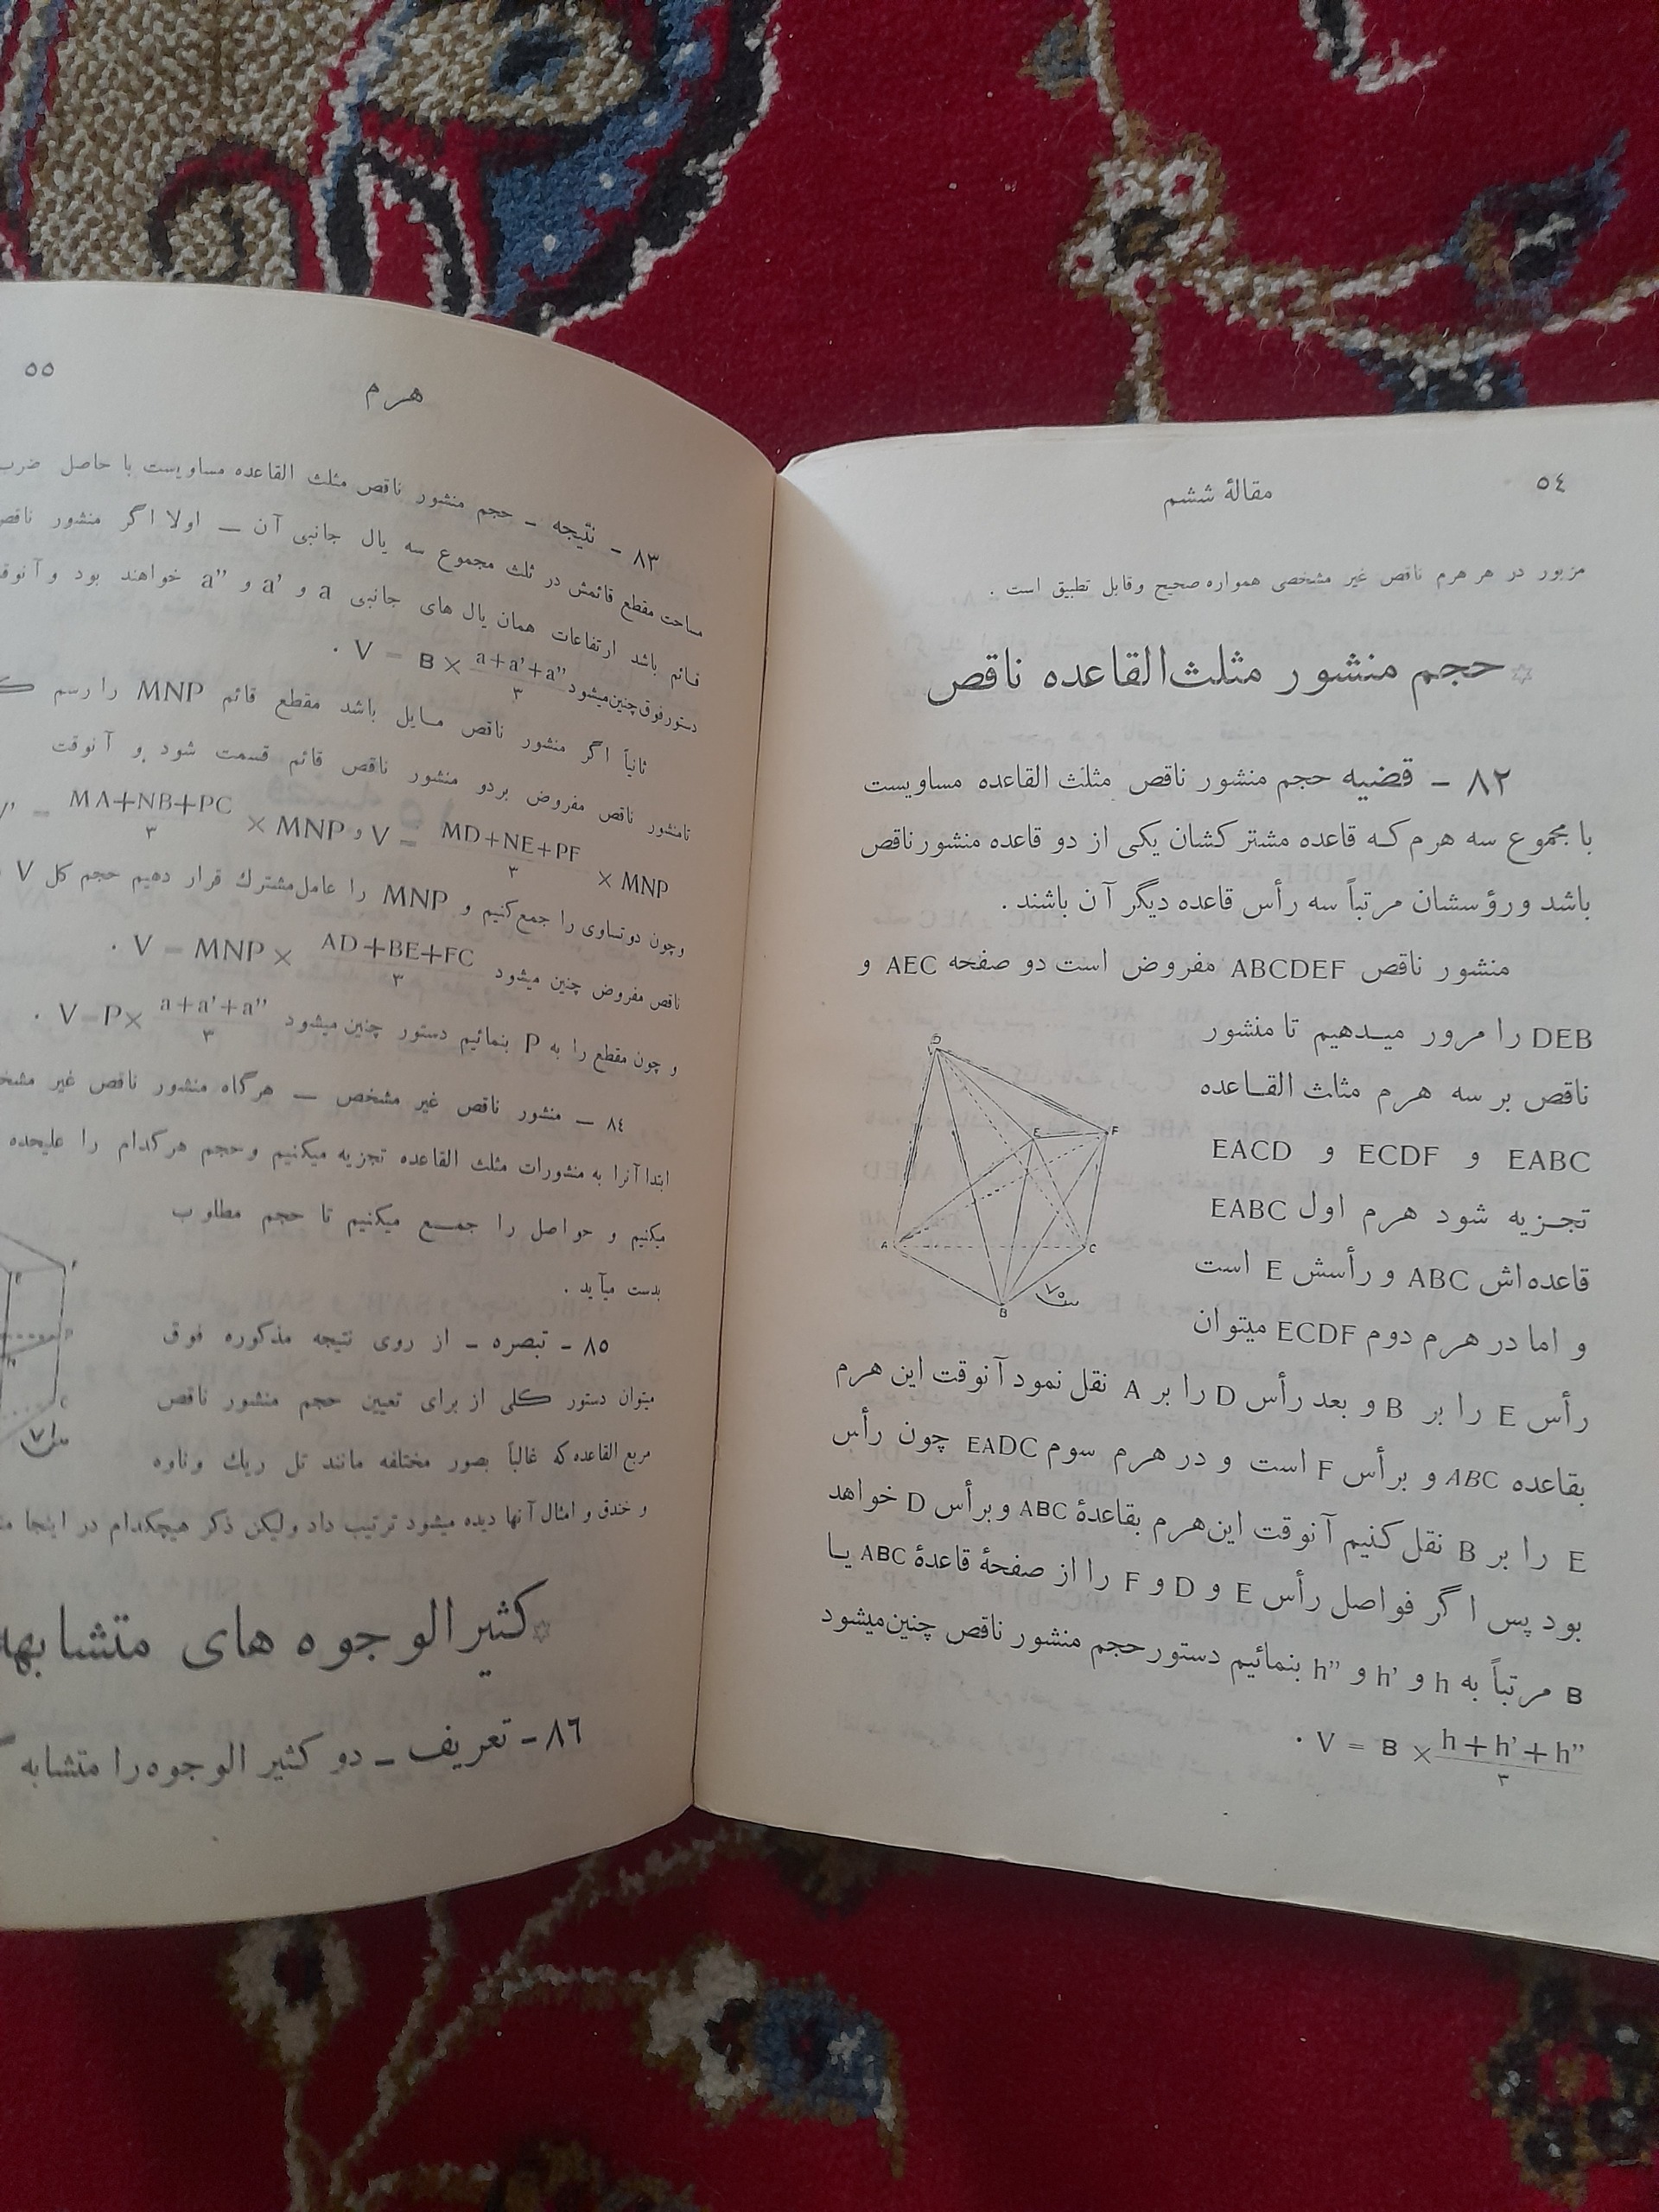 ٥٤
مقالهٔ ششم
مزبور در هر هرم ناقص غیر مشخصی همواره صحیح وقابل تطبیق است .
حجم منشور مثلث‌القاعده ناقص
٨٢ - قضیه حجم منشور ناقص مثلث القاعده مساویست
با مجموع سه هرم که قاعده مشترکشان یکی از دو قاعده منشورناقص
باشد ورؤسشان مرتباً سه رأس قاعده دیگر آن باشند .
منشور ناقص ABCDEF مفروض است دو صفحه AEC و
DEB را مرور میـدهیم تا منشور
ناقص بر سه هرم مثلث القـاعده
EABC و ECDF و EACD
تجـزیه شود هرم اول EABC
قاعده‌اش ABC و رأسش E است
و اما در هرم دوم ECDF میتوان
رأس E را بر B و بعد رأس D را بر A نقل نمود آنوقت این هرم
بقاعده ABC و برأس F است و در هرم سوم EADC چون رأس
E را بر B نقل کنیم آنوقت این‌هرم بقاعدهٔ ABC وبرأس D خواهد
بود پس اگر فواصل رأس E و D و F را از صفحهٔ قاعدهٔ ABC یـا
B مرتباً به h و h' و h'' بنمائیم دستورحجم منشور ناقص چنین‌میشود
V = B × (h + h' + h'')/٣ .
D
E
F
A
C
B
ش ٧٠
٥٥
هرم
٨٣ - نتیجه - حجم منشور ناقص مثلث القاعده مساویست با حاصل ضرب
مساحت مقطع قائمش در ثلث مجموع سه یال جانبی آن — اولا اگر منشور
قـائم باشد ارتفاعات همان یال های جانبی a و a' و a'' خواهند بود
دستورفوق‌چنین‌میشود V = B × (a+a'+a'')/٣ .
ثانیاً اگر منشور ناقص مـایل باشد مقطع قائم MNP را رسم
تامنشور ناقص مفروض بردو منشور ناقص قائم قسمت شود و آنوقت
V = (MD+NE+PF)/٣ × MNP و (MA+NB+PC)/٣ × MNP
وچون دوتساوی را جمع‌کنیم و MNP را عامل‌مشترك قرار دهیم حجم کل V
ناقص مفروض چنین میشود V = MNP × (AD+BE+FC)/٣ .
و چون مقطع را به P بنمائیم دستور چنین میشود V = P × (a+a'+a'')/٣ .
٨٤ — منشور ناقص غیر مشخص — هرگاه منشور ناقص غیر
ابتدا آنرا به منشورات مثلث القاعده تجزیه میکنیم وحجم هرکدام را علیحده
میکنیم و حواصل را جمـع میکنیم تا حجم مطلوب
بدست میآید .
٨٥ - تبصره - از روی نتیجه مذکوره فوق
میتوان دستور کلی از برای تعیین حجم منشور ناقص
مربع القاعده‌که غالباً بصور مختلفه مانند تل ریك وناوه
و خندق و امثال آنها دیده میشود ترتیب داد ولیکن ذکر هیچکدام در اینجا
ش ٧١
کثیرالوجوه های متشابهه
٨٦ - تعریف - دو کثیر الوجوه‌را متشابه